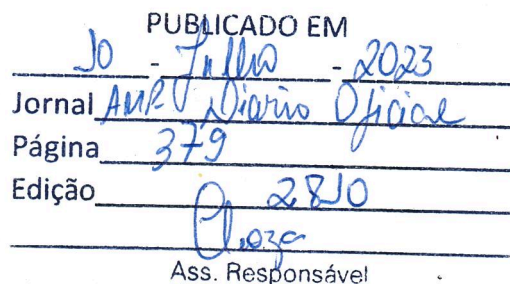 PUBLICADO EM
10 - Julho - 2023
Jornal AMP Diario Oficial
Página 379
Edição 2810
Ass. Responsável